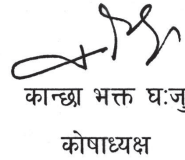 कान्छा भक्त घ:जु
कोषाध्यक्ष